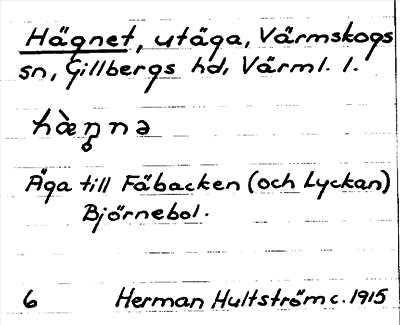 Hägnet, utäga, Värmskogs
sn, Gillbergs hd, Värml. l.
hæ̀ŋ̥nə
Äga till Fäbacken (och Lyckan)
Björnebol.
6 Herman Hultström c. 1915